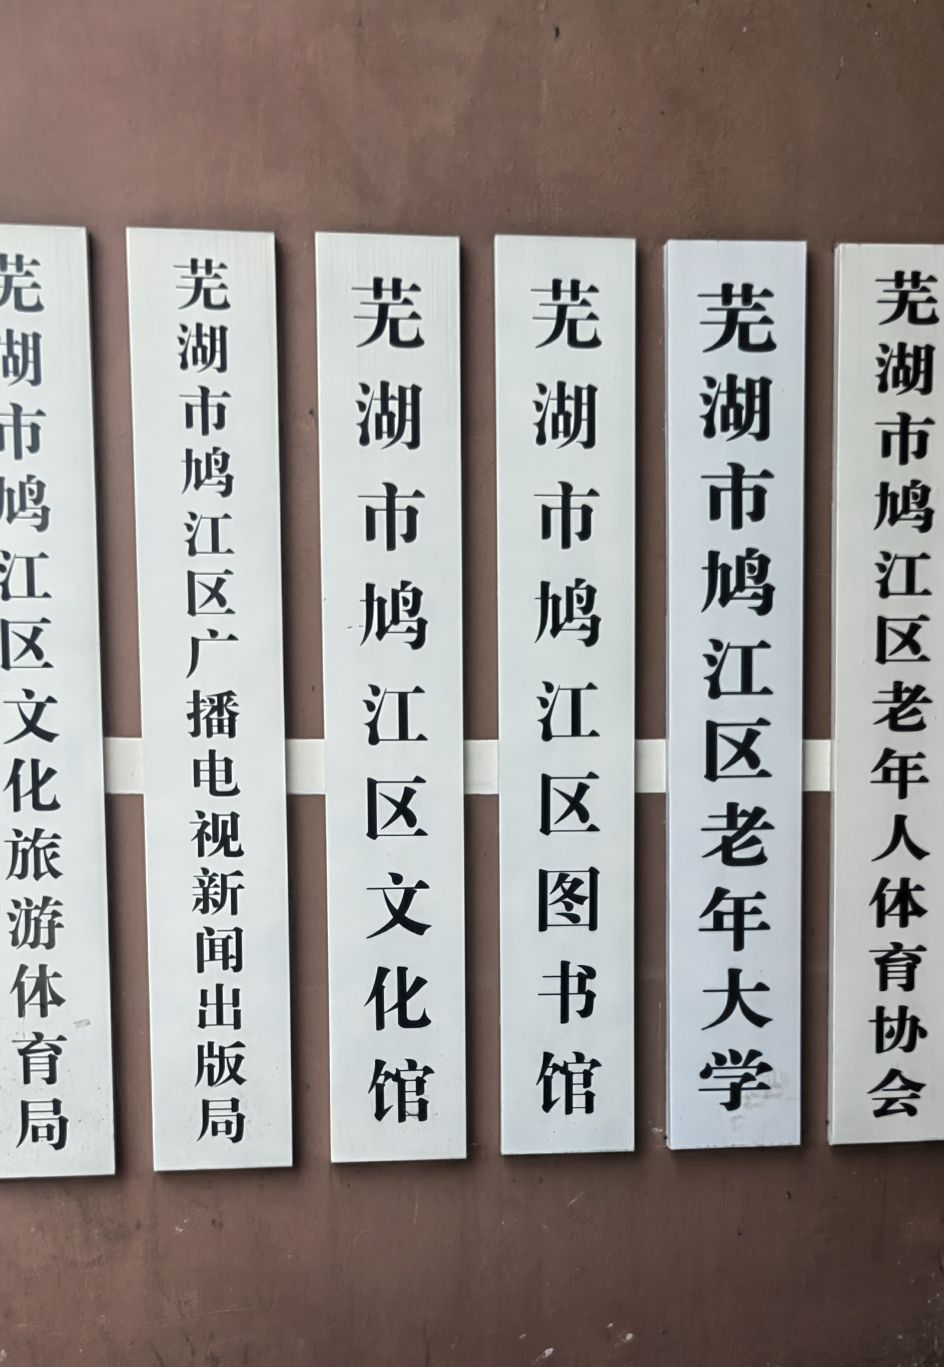 芜湖市鸠江区文化旅游体育局
芜湖市鸠江区广播电视新闻出版局
芜湖市鸠江区文化馆
芜湖市鸠江区图书馆
芜湖市鸠江区老年大学
芜湖市鸠江区老年人体育协会